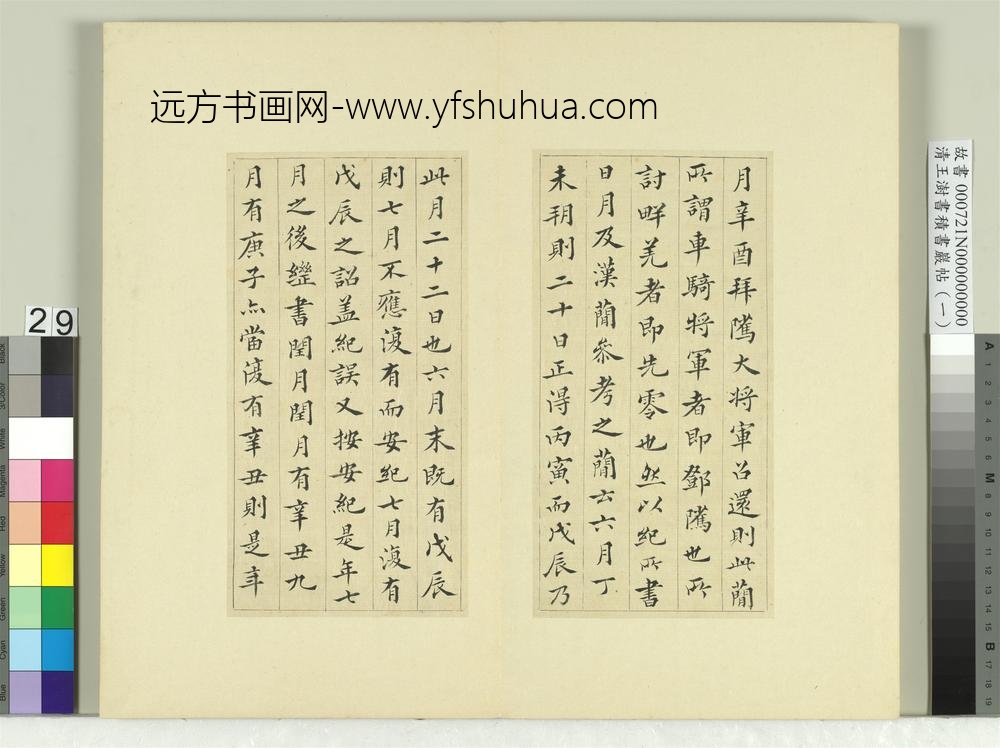 远方书画网-www.yfshuhua.com
月辛酉拜隲大将軍召還則此蕳
所謂車騎将軍者即鄧隲也所
討畔羌者即先零也然以紀所書
日月及漢蕳叅考之蕳云六月丁
未朔則二十日正得丙寅而戊辰乃
此月二十二日也六月末既有戊辰
則七月不應復有而安紀七月復有
戊辰之詔盖紀誤又按安紀是年七
月之後繼書閏月閏月有辛丑九
月有庚子亦當復有辛丑則是年
故書 000721N000000000
清王澍書積書巖帖（一）
29
Black
3/Color
White
Magenta
Red
Yellow
Green
Cyan
Blue
A
1
2
3
4
5
6
M
8
9
10
11
12
13
14
15
B
17
18
19